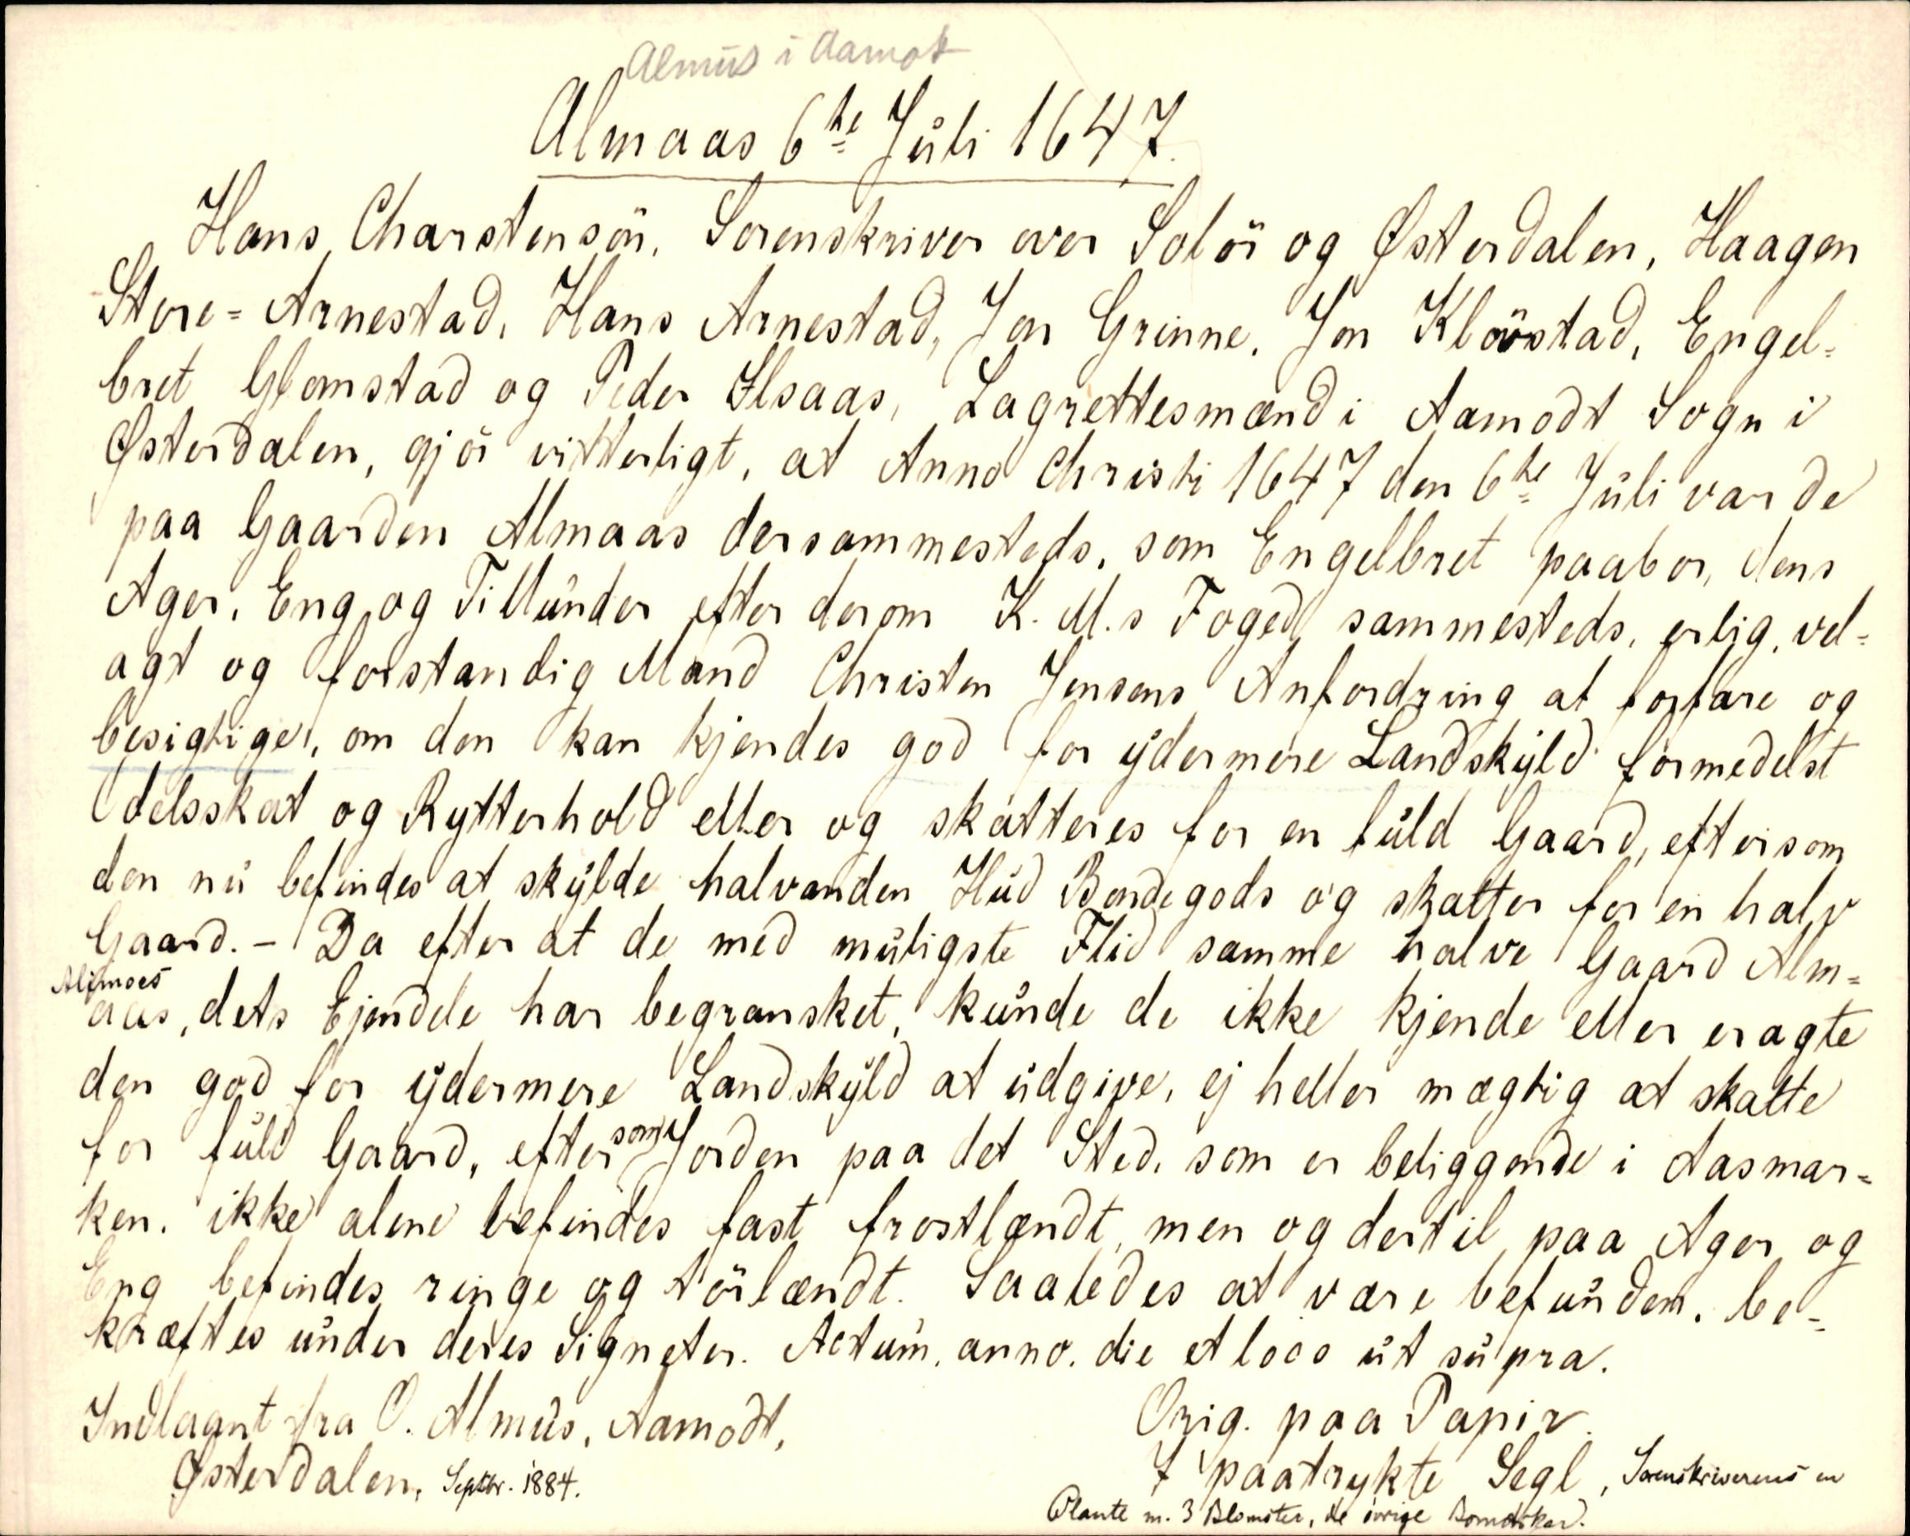 Almus i Aamot
Almaas 6te Juli 1647.
Hans Charstensön, Sorenskriver over Solör og Østerdalen, Haagen
Store=Arnestad, Hans Arnestad, Jon Grinne, Jon Klövstad, Engel=
bret Glomstad og Peder Ilsaas, Lagrettesmænd i Aamodt Sogn i
Østerdalen, gjör vitterligt, at Anno Christi 1647 den 6te Juli var de
paa Gaarden Almaas dersammesteds, som Engelbret paabor, dens
Ager, Eng og Tillunder efter derom K. M.s Foged sammesteds, erlig, vel=
agt og forstandig Mand Christen Jensens Anfordring at forfare og
besigtige, om den kan kjendes god for ydermere Landskyld formedelst
Odelsskat og Rytterhold eller og skatteres for en fuld Gaard, eftersom
den nu befindes at skylde halvanden Hud Bondegods og skatter for en halv
Gaard. - Da efter at de med muligste Flid samme halve Gaard Alm=
Alimoes
aas, dets Ejendele har begransket, kunde de ikke kjende eller eragte
den god for ydermere Landskyld at udgive, ej heller mægtig at skatte
for fuld Gaard, eftersom Jorden paa det Sted, som er beliggende i Aasmar=
ken, ikke alene befindes fast frostlændt, men og dertil paa Ager og
Eng befindes ringe og törlændt. Saaledes at være befunden, be-
kræftes under deres Signeter. Actum, anno, die et loco ut supra.
Indlaant fra O. Almus, Aamodt,
Østerdalen, Septbr. 1884.
Orig. paa Papir.
7 paatrykte Segl, Sorenskriverens en
Plante m. 3 Blomster, de övrige Bomærker.